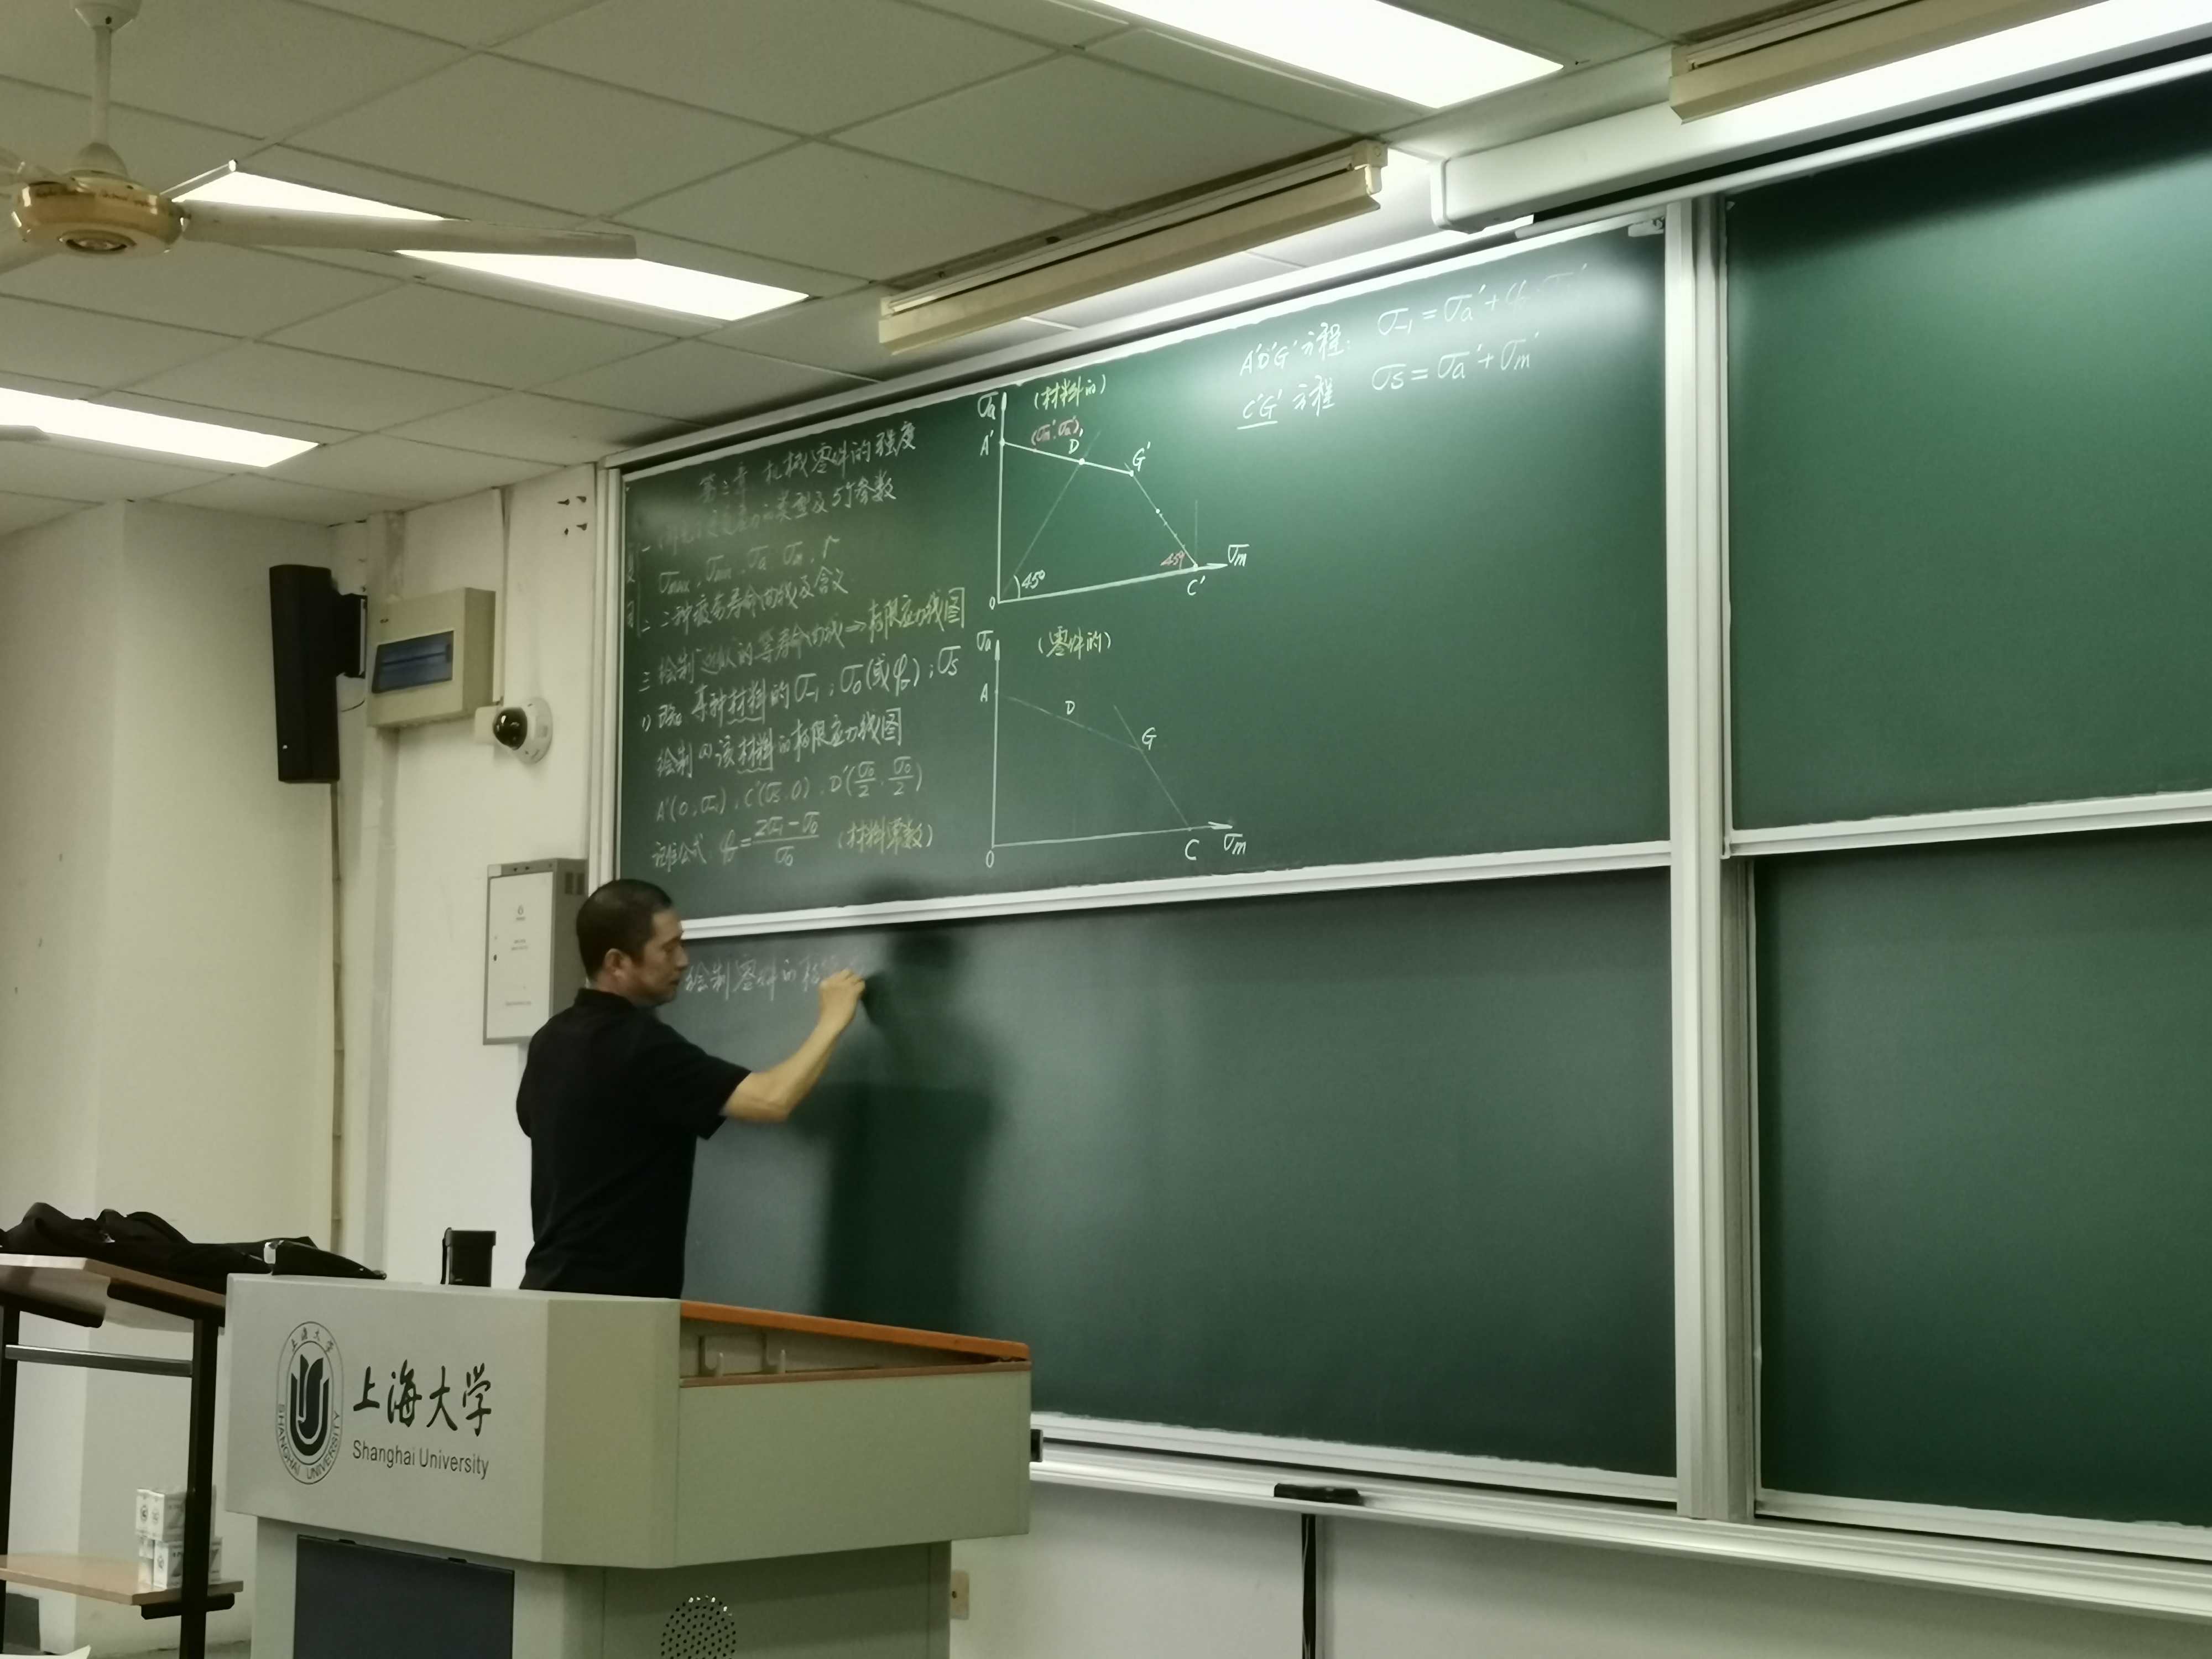 第三章 机械零件的强度
一 变应力的类型及5个参数
σmax、σmin、σa、σm、r
复习
二 二种疲劳寿命曲线及含义
三 绘制近似的等寿命曲线→极限应力线图
1) 已知 某种材料的σ-1；σ0(或φσ)；σs
绘制 该材料的极限应力线图
A'(0,σ-1)、C'(σs,0)、D'(σ0/2, σ0/2)
记住公式：φσ=(2σ-1-σ0)/σ0 (材料常数)
σa (材料的)
(σm',σa')
A' D' G'
45° 45°
O C' σm
σa (零件的)
A D G
O C σm
A'D'G'方程： σ-1=σa'+φσ·σm'
C'G'方程 σs=σa'+σm'
绘制零件的极限
上海大学
SHANGHAI UNIVERSITY
上海大学
Shanghai University